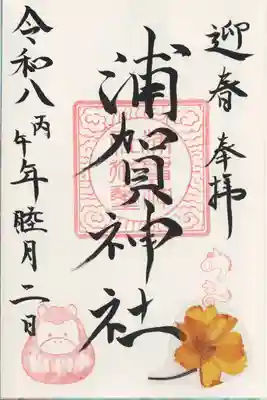 迎春 奉拝
浦賀神社
令和八丙午年睦月二日